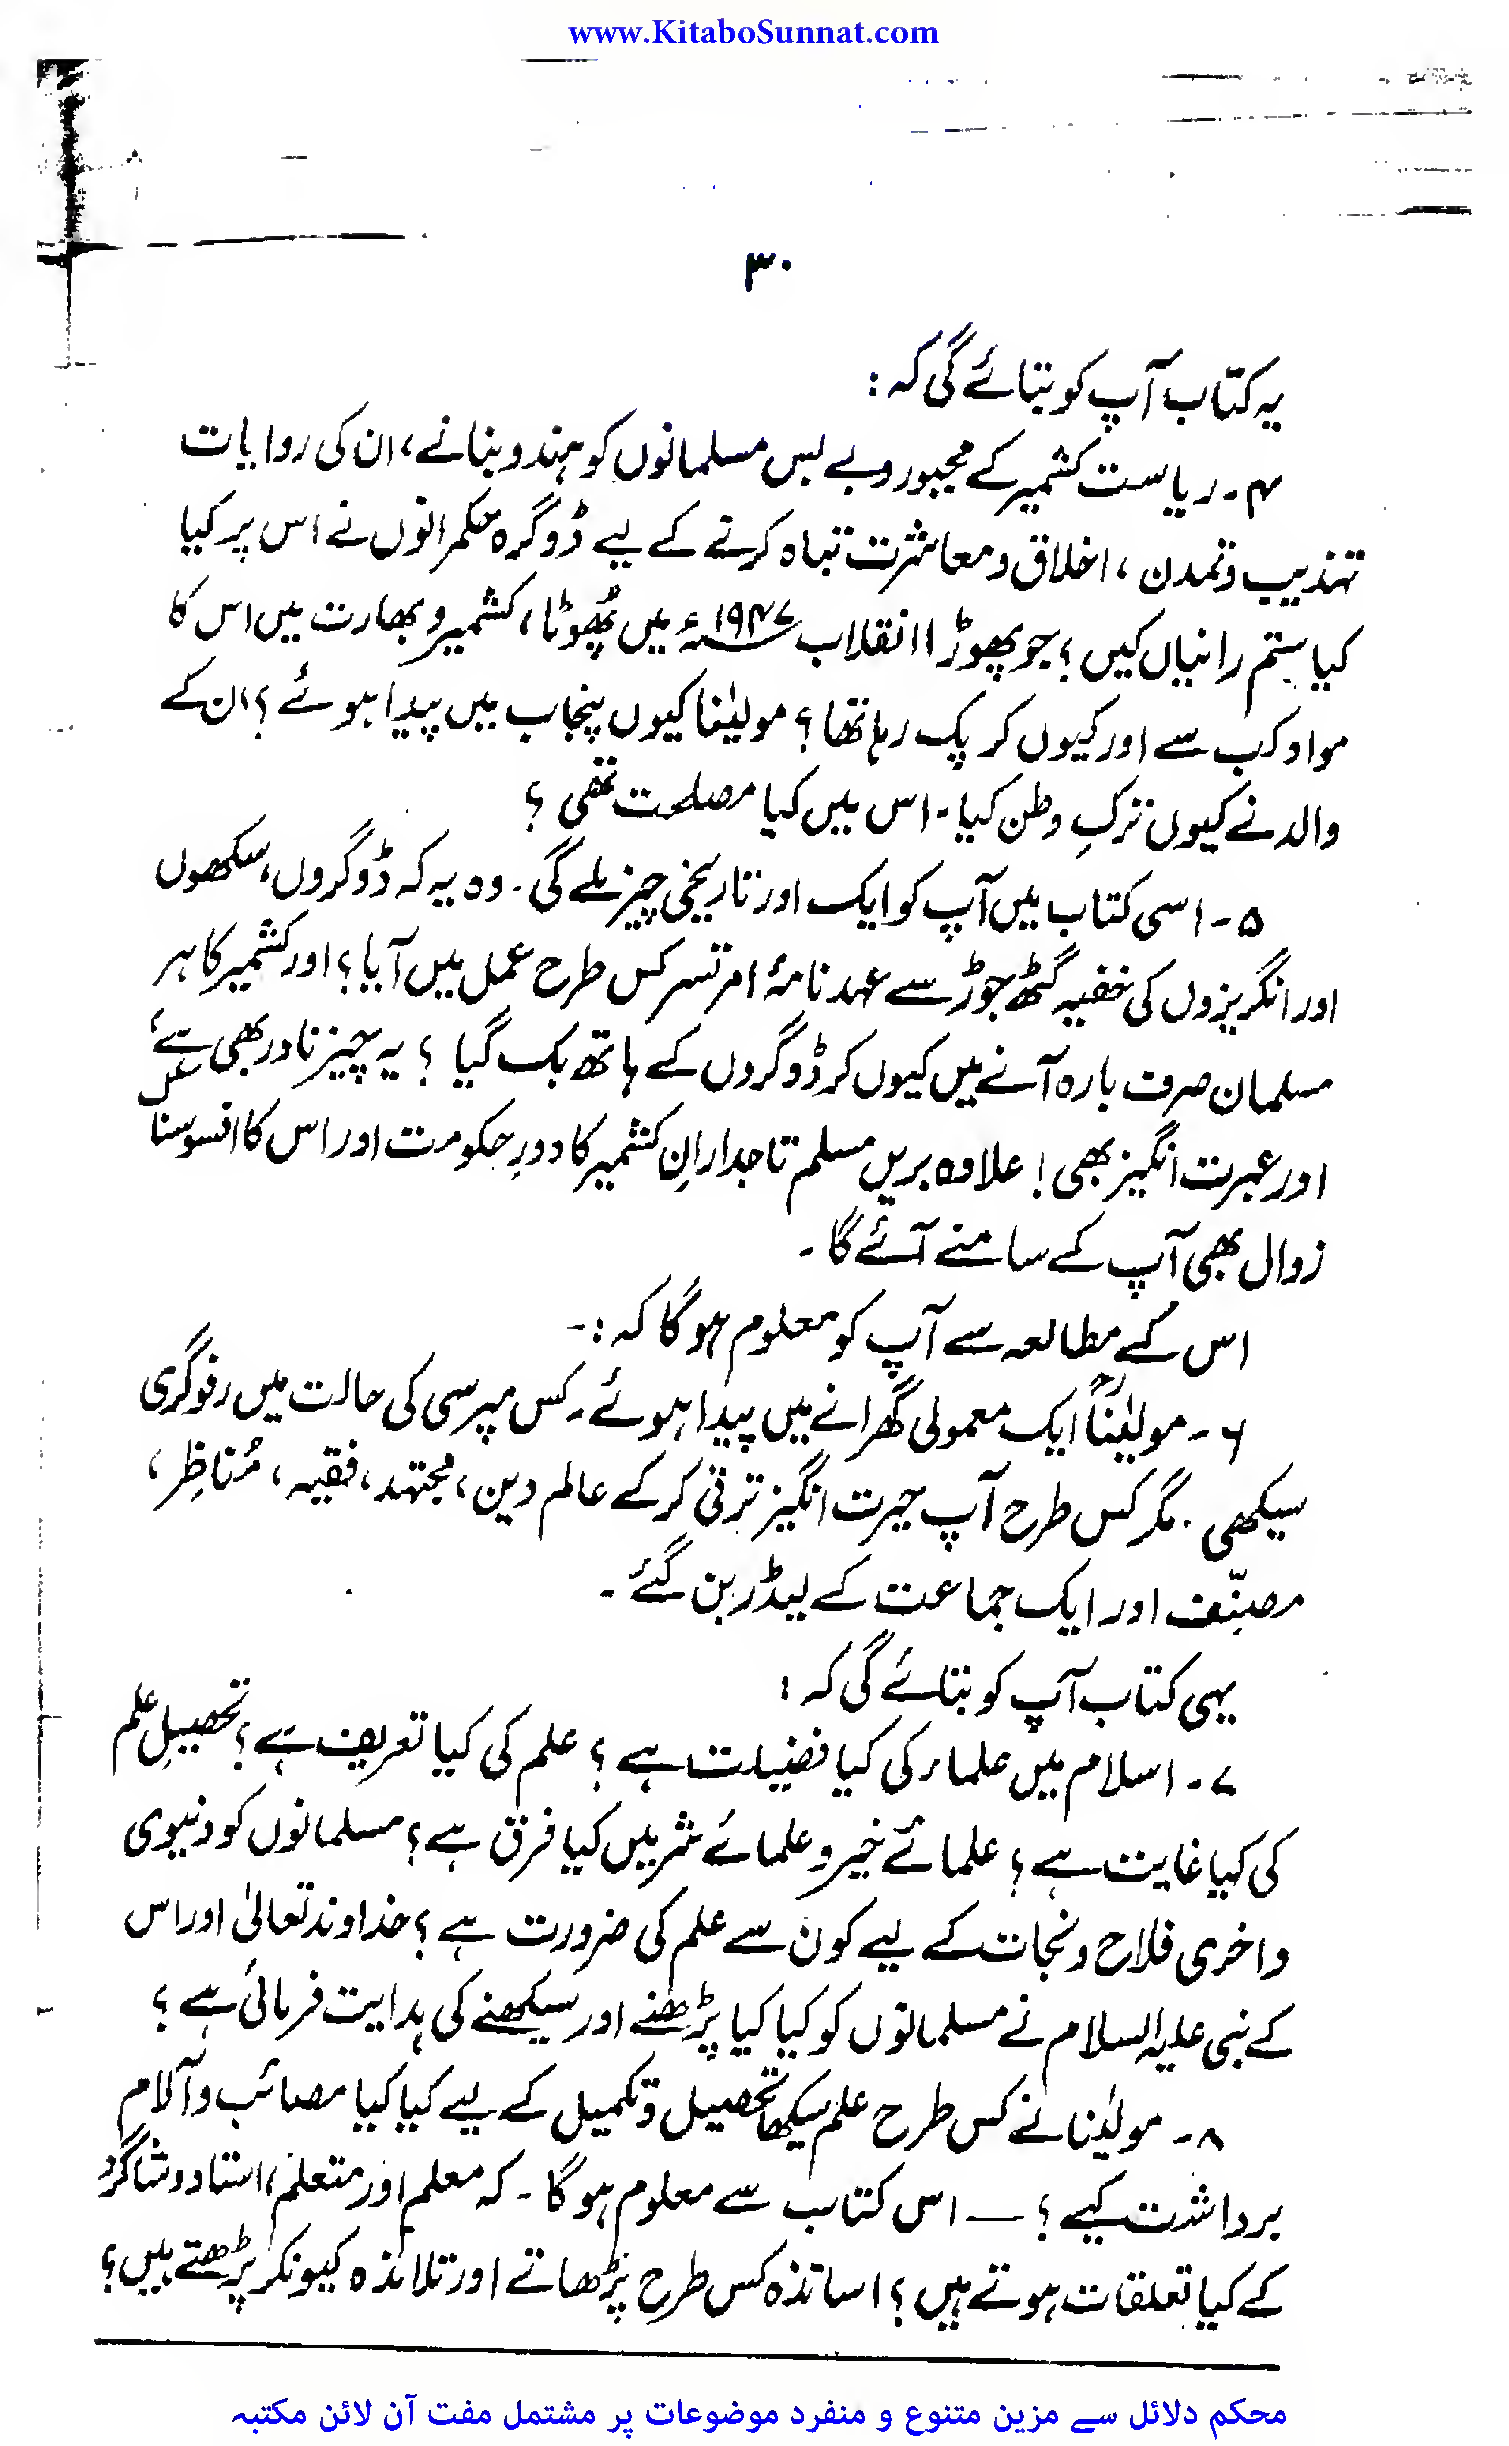 www.KitaboSunnat.com
۳۰
یہ کتاب آپ کو بتائے گی کہ :
۴۔ ریاست کشمیر کے مجبور و بے بس مسلمانوں کو ہندو بنانے، ان کی روایات
تہذیب و تمدن ، اخلاق و معاشرت تباہ کرنے کے لیے ڈوگرہ حکمرانوں نے اس پر کیا
کیا ستم رانیاں کیں ؟ جو پھوڑا انقلاب ۱۹۴۷ء میں پھُوٹا، کشمیر و بھارت میں اس کا
مواد کب سے اور کیوں کر پک رہا تھا ؟ مولیٰنا کیوں پنجاب میں پیدا ہوئے ؟ ان کے
والد نے کیوں ترکِ وطن کیا۔ اس میں کیا مصلحت تھی ؟
۵۔ اسی کتاب میں آپ کو ایک اور تاریخی چیز ملے گی۔ وہ یہ کہ ڈوگروں، سکھوں
اور انگریزوں کی خفیہ گٹھ جوڑ سے عہد نامۂ امرتسر کس طرح عمل میں آیا؟ اور کشمیر کا ہر
مسلمان صرف بارہ آنے میں کیوں کر ڈوگروں کے ہاتھ بک گیا ؟ یہ چیز نادر بھی ہے
اور عبرت انگیز بھی ! علاوہ بریں مسلم تاجدارانِ کشمیر کا دورِ حکومت اور اس کا افسوسناک
زوال بھی آپ کے سامنے آئے گا ۔
اس کے مطالعہ سے آپ کو معلوم ہوگا کہ :-
۶۔ مولیٰناؒ ایک معمولی گھرانے میں پیدا ہوئے۔ کس مپرسی کی حالت میں رفوگری
سیکھی ۔ مگر کس طرح آپ حیرت انگیز ترقی کر کے عالم دین، مجتہد، فقیہ، مُناظِر ،
مصنّف اور ایک جماعت کے لیڈر بن گئے ۔
یہی کتاب آپ کو بتائے گی کہ :
۷۔ اسلام میں علماء کی کیا فضیلت ہے ؟ علم کی کیا تعریف ہے ؟ تحصیلِ علم
کی کیا غایت ہے ؟ علمائے خیر و علمائے شر میں کیا فرق ہے ؟ مسلمانوں کو دنیوی
و اخری فلاح و نجات کے لیے کون سے علم کی ضرورت ہے ؟ خداوند تعالیٰ اور اس
کے نبی علیہ السلام نے مسلمانوں کو کیا کیا پڑھنے اور سیکھنے کی ہدایت فرمائی ہے ؟
۸۔ مولیٰنا نے کس طرح علم سیکھا تحصیل و تکمیل کے لیے کیا کیا مصائب و آلام
برداشت کیے ؟ — اس کتاب سے معلوم ہوگا ۔ کہ معلم اور متعلم، استاد و شاگرد
کے کیا تعلقات ہوتے ہیں ؟ اساتذہ کس طرح پڑھاتے اور تلامذہ کیونکر پڑھتے ہیں ؟
محکم دلائل سے مزین متنوع و منفرد موضوعات پر مشتمل مفت آن لائن مکتبہ